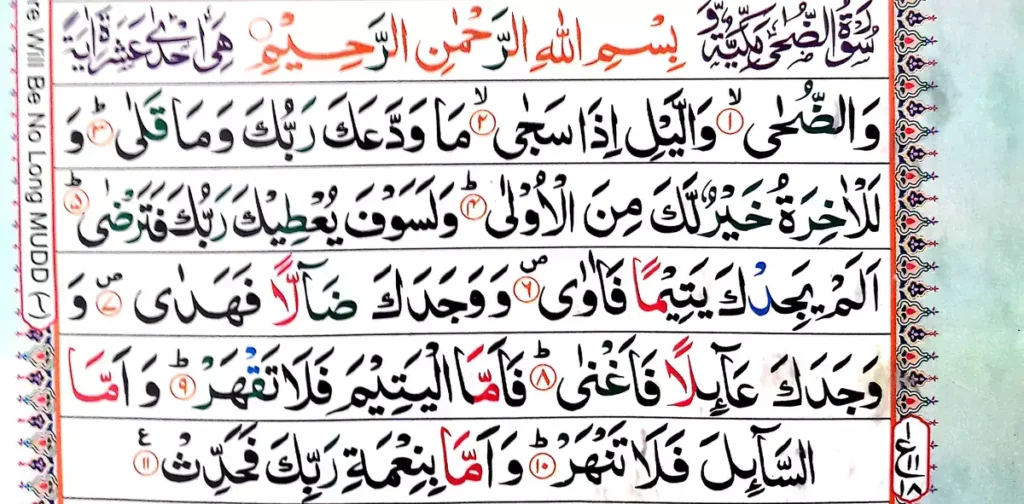 سُوْرَةُ الضُّحٰى مَكِّيَّةٌ وَّ بِسْمِ اللهِ الرَّحْمٰنِ الرَّحِيْمِ هِىَ اِحْدٰى عَشَرَةَ اٰيَةً
وَالضُّحٰىۙ ۱ وَالَّيْلِ اِذَا سَجٰىۙ ۲ مَا وَدَّعَكَ رَبُّكَ وَمَا قَلٰىؕ ۳ وَ
لَلْاٰخِرَةُ خَيْرٌ لَّكَ مِنَ الْاُوْلٰىؕ ۴ وَلَسَوْفَ يُعْطِيْكَ رَبُّكَ فَتَرْضٰىؕ ۵
اَلَمْ يَجِدْكَ يَتِيْمًا فَاٰوٰى۪ ۶ وَوَجَدَكَ ضَآلًّا فَهَدٰى۪ ۷ وَ
وَجَدَكَ عَآئِلًا فَاَغْنٰىؕ ۸ فَاَمَّا الْيَتِيْمَ فَلَا تَقْهَرْؕ ۹ وَ اَمَّا
السَّآئِلَ فَلَا تَنْهَرْؕ ۱۰ وَ اَمَّا بِنِعْمَةِ رَبِّكَ فَحَدِّثْ ۱۱ ع
ع ۱ ۱۱ ۱۸
re Will Be No Long MUDD (~)